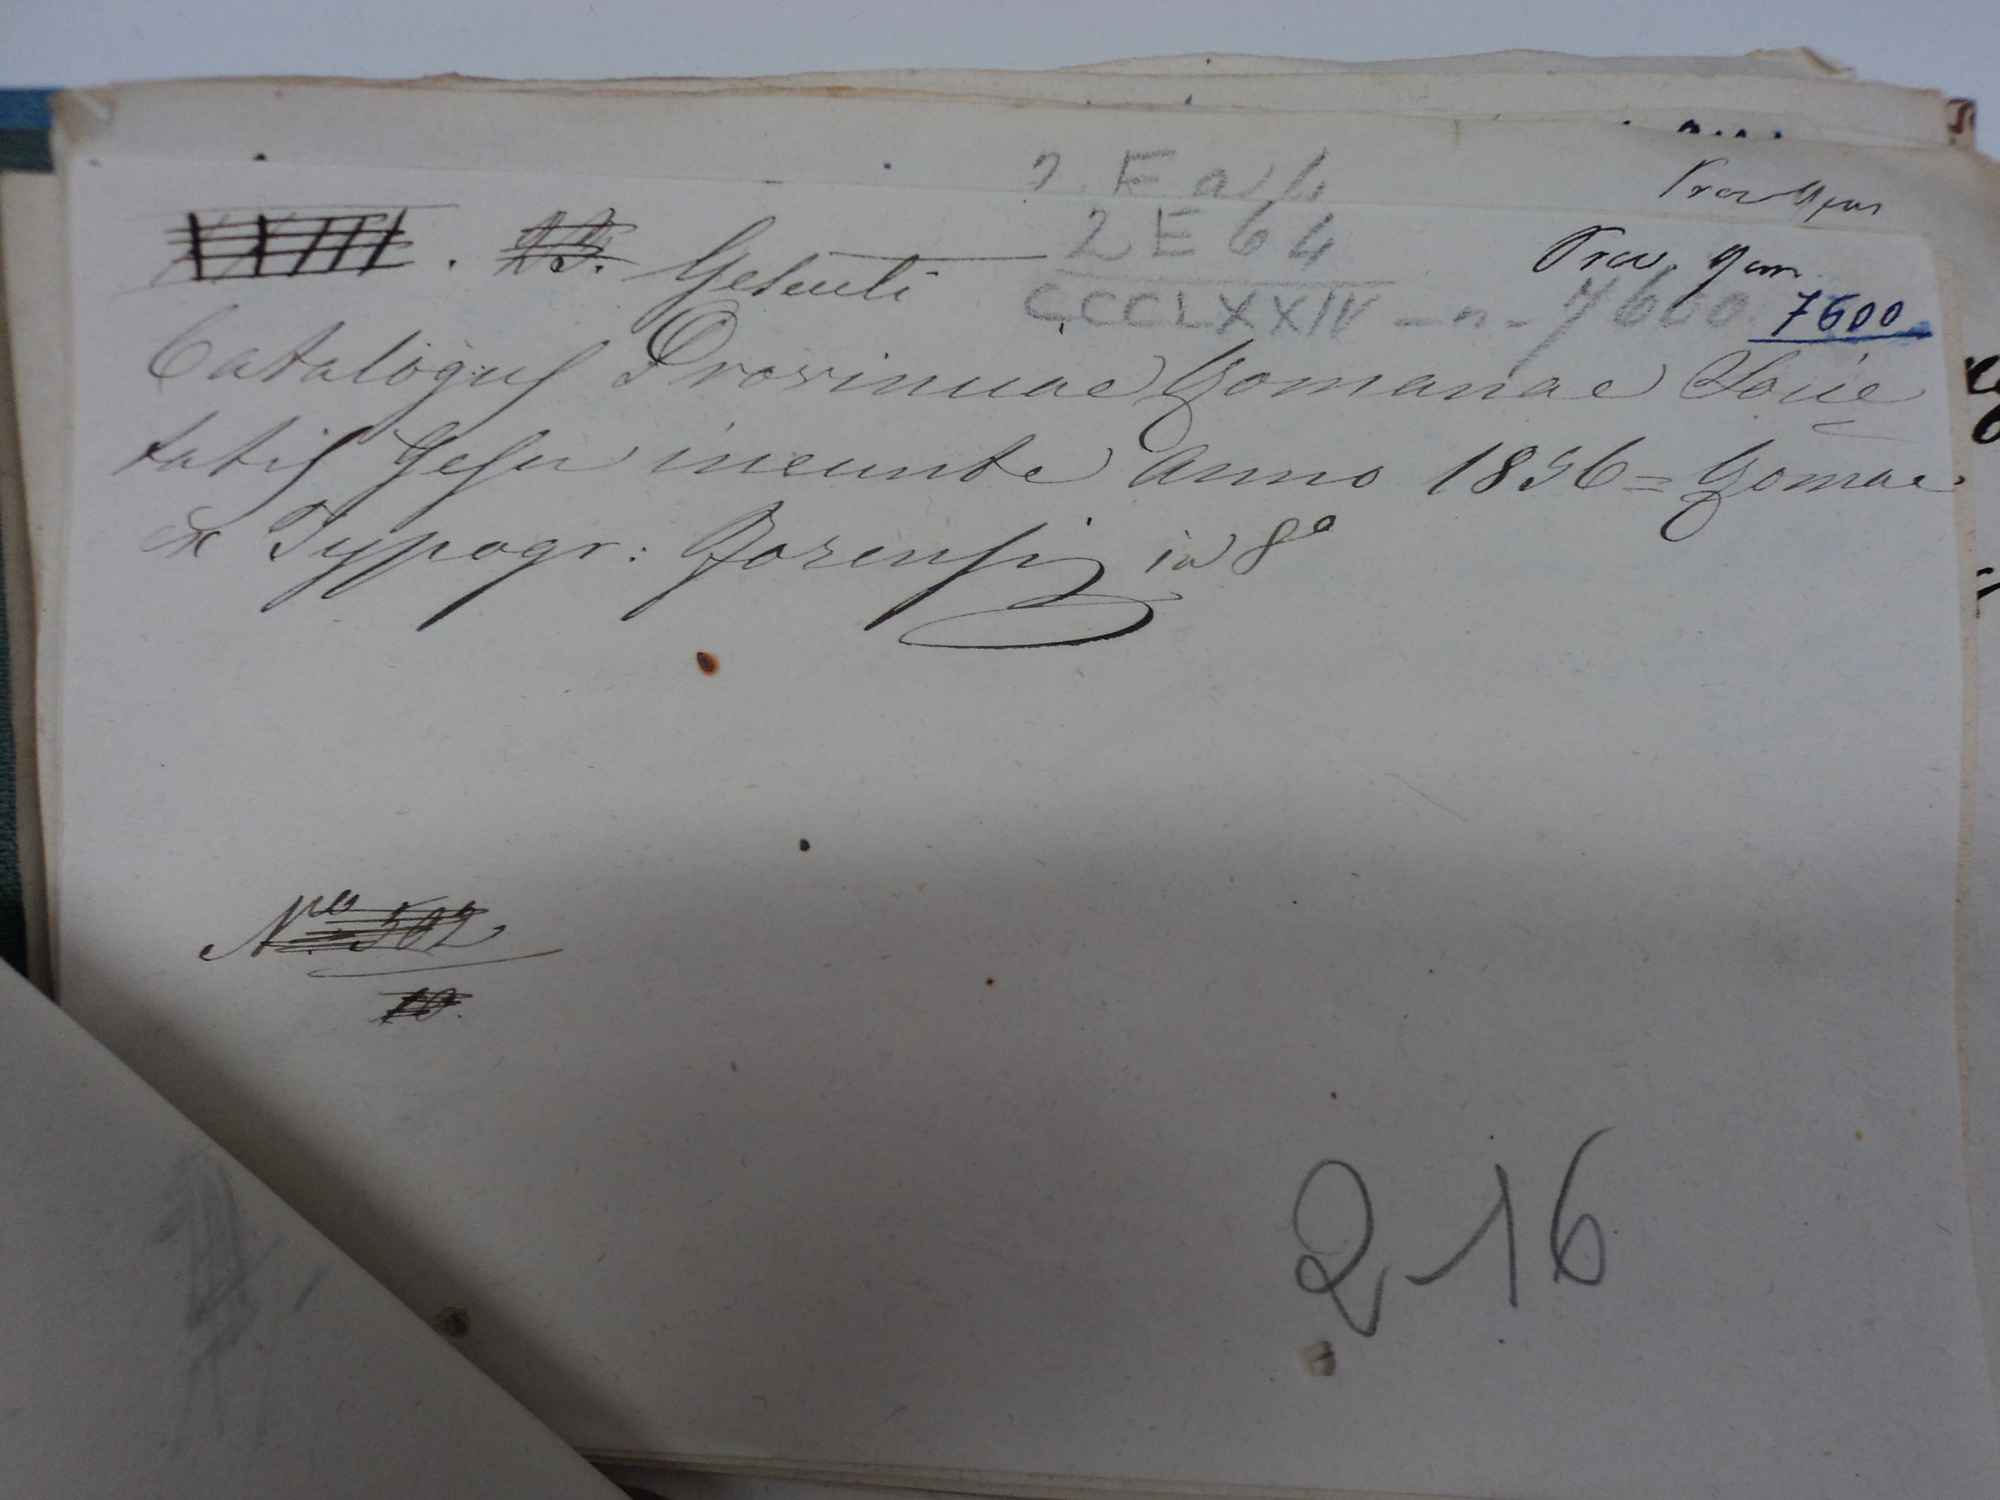 Prov Rom
2 E 64
XXIII. 23. Gesuiti
Prov. Rom
CCCLXXIV - n - 7600 7600
Catalogus Provinciae Romanae Socie
tatis Jesu ineunte anno 1856 = Romae
ex Typogr: Forensi in 8º
Nº 502
10.
216